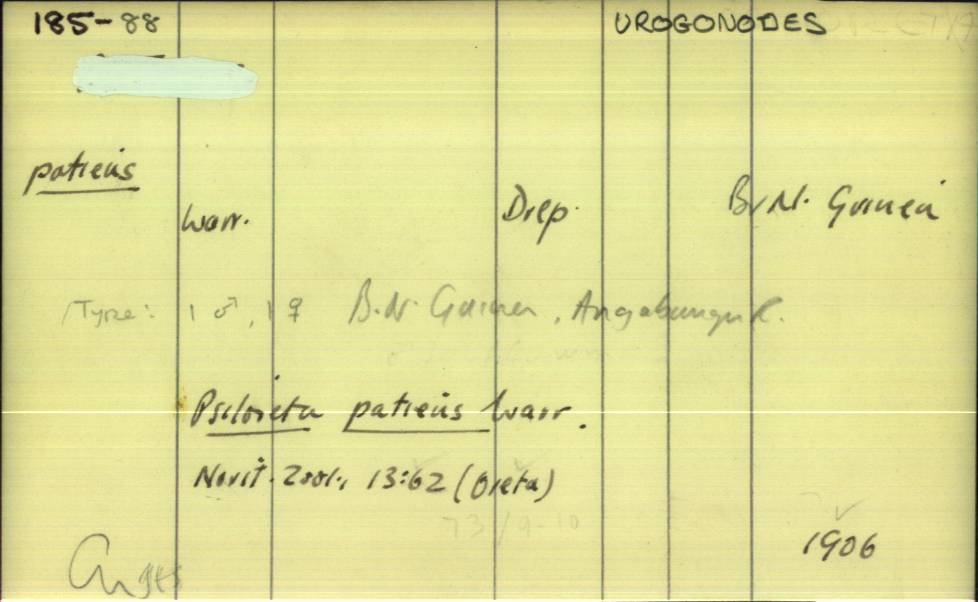 185-88 UROGONODES
patiens
Warr. Drep. Br N. Guinea
Type: 1 ♂, 1 ♀ B.N. Guinea, Angabunga R.
Psiloreta patiens Warr.
Novit. Zool., 13:62 (Oreta)
73/9-10
1906